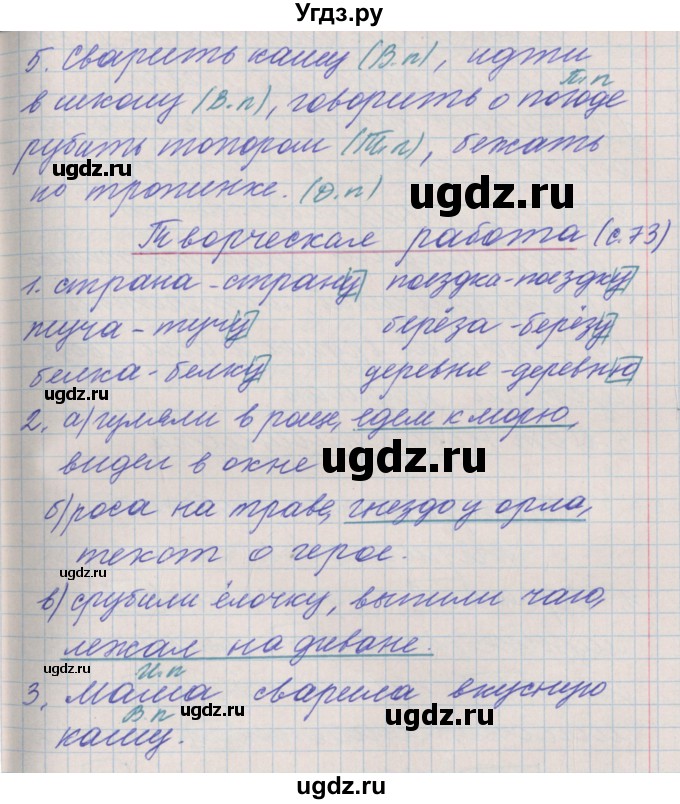 Угдз.ру
5. Сварить кашу (В.п), идти
П.п
в школу (В.п), говорить о погоде
рубить топором (Т.п), бежать
ugdz.ru
по тропинке. (Д.п)
ugdz.ru
ugdz.ru
Творческая работа (с.73)
1. страна - страну поездка - поездку
туча - тучу берёза - берёзу
ugdz.ru
белка - белку деревня - деревню
ugdz.ru
2. а) гуляли в роще, едем к морю,
ugdz.ru
видел в окне
ugdz.ru
б) роса на траве, гнездо у орла,
текст о герое.
ugdz.ru
ugdz.ru
в) срубили ёлочку, выпили чаю,
ugdz.ru
лежал на диване.
ugdz.ru
И.п
3. Мама сварила вкусную
В.п
ugdz.ru
ugdz.ru
кашу.
ugdz.ru
ugdz.ru